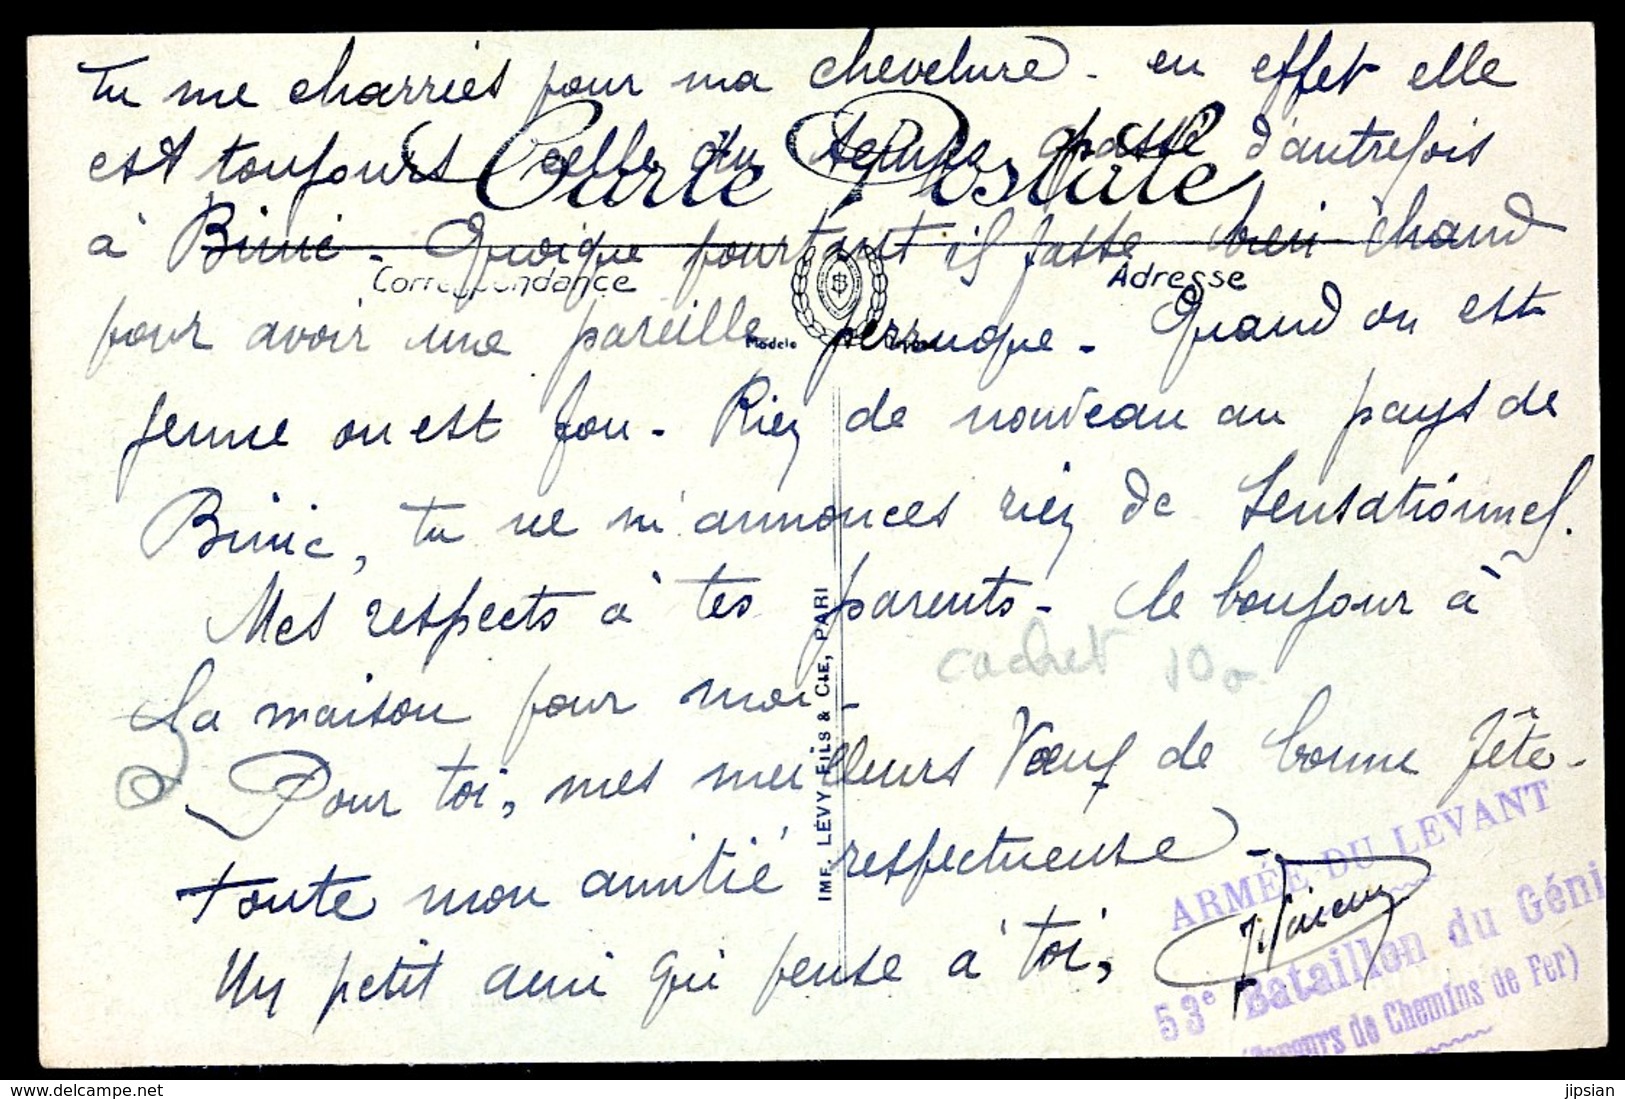 tu me charries pour ma chevelure - en effet elle
est toujours celle du temps passé d'autrefois
Carte Postale
à Binic - Quoique pourtant il fasse bien chaud
Correspondance
Adresse
pour avoir une pareille perruque - Quand on est
Modèle
jeune on est fou - Rien de nouveau au pays de
Binic, tu ne m'annonces rien de sensationnel.
Mes respects à tes parents - le bonjour à
cachet 10
la maison pour moi -
Pour toi, mes meilleurs Vœux de bonne fête -
toute mon amitié respectueuse -
Un petit ami qui pense à toi,
IMP. LÉVY FILS & CIE, PARI
ARMÉE DU LEVANT
53e Bataillon du Géni
(Sapeurs de Chemins de Fer)
delcampe.net
jipsian